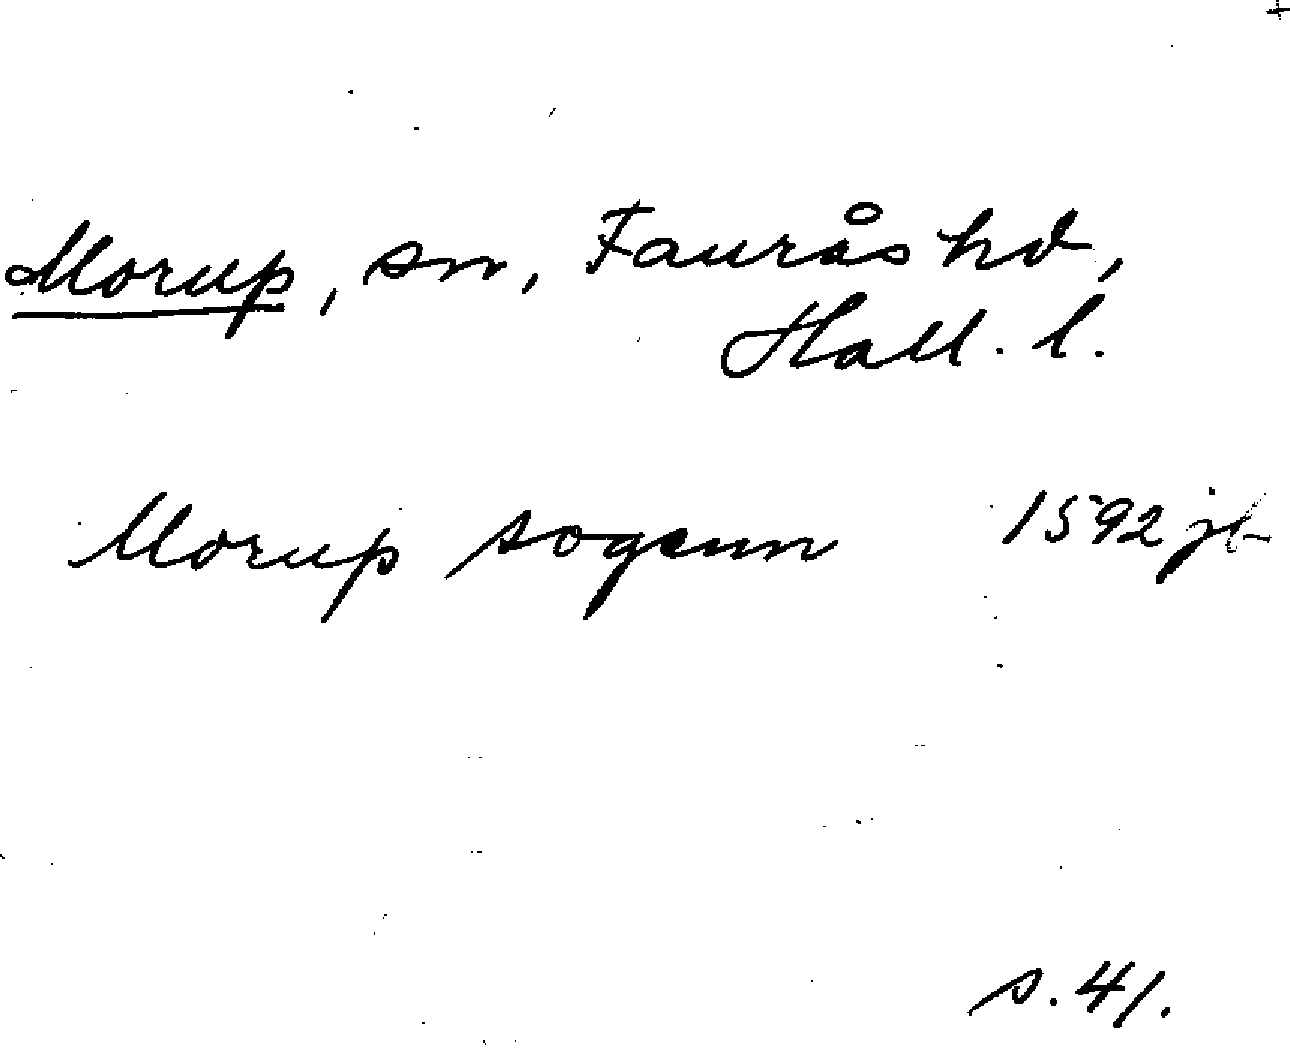 +
Morup, sn, Faurås hd,
Hall. l.
Morup sogenn 1592 jb
s. 41.